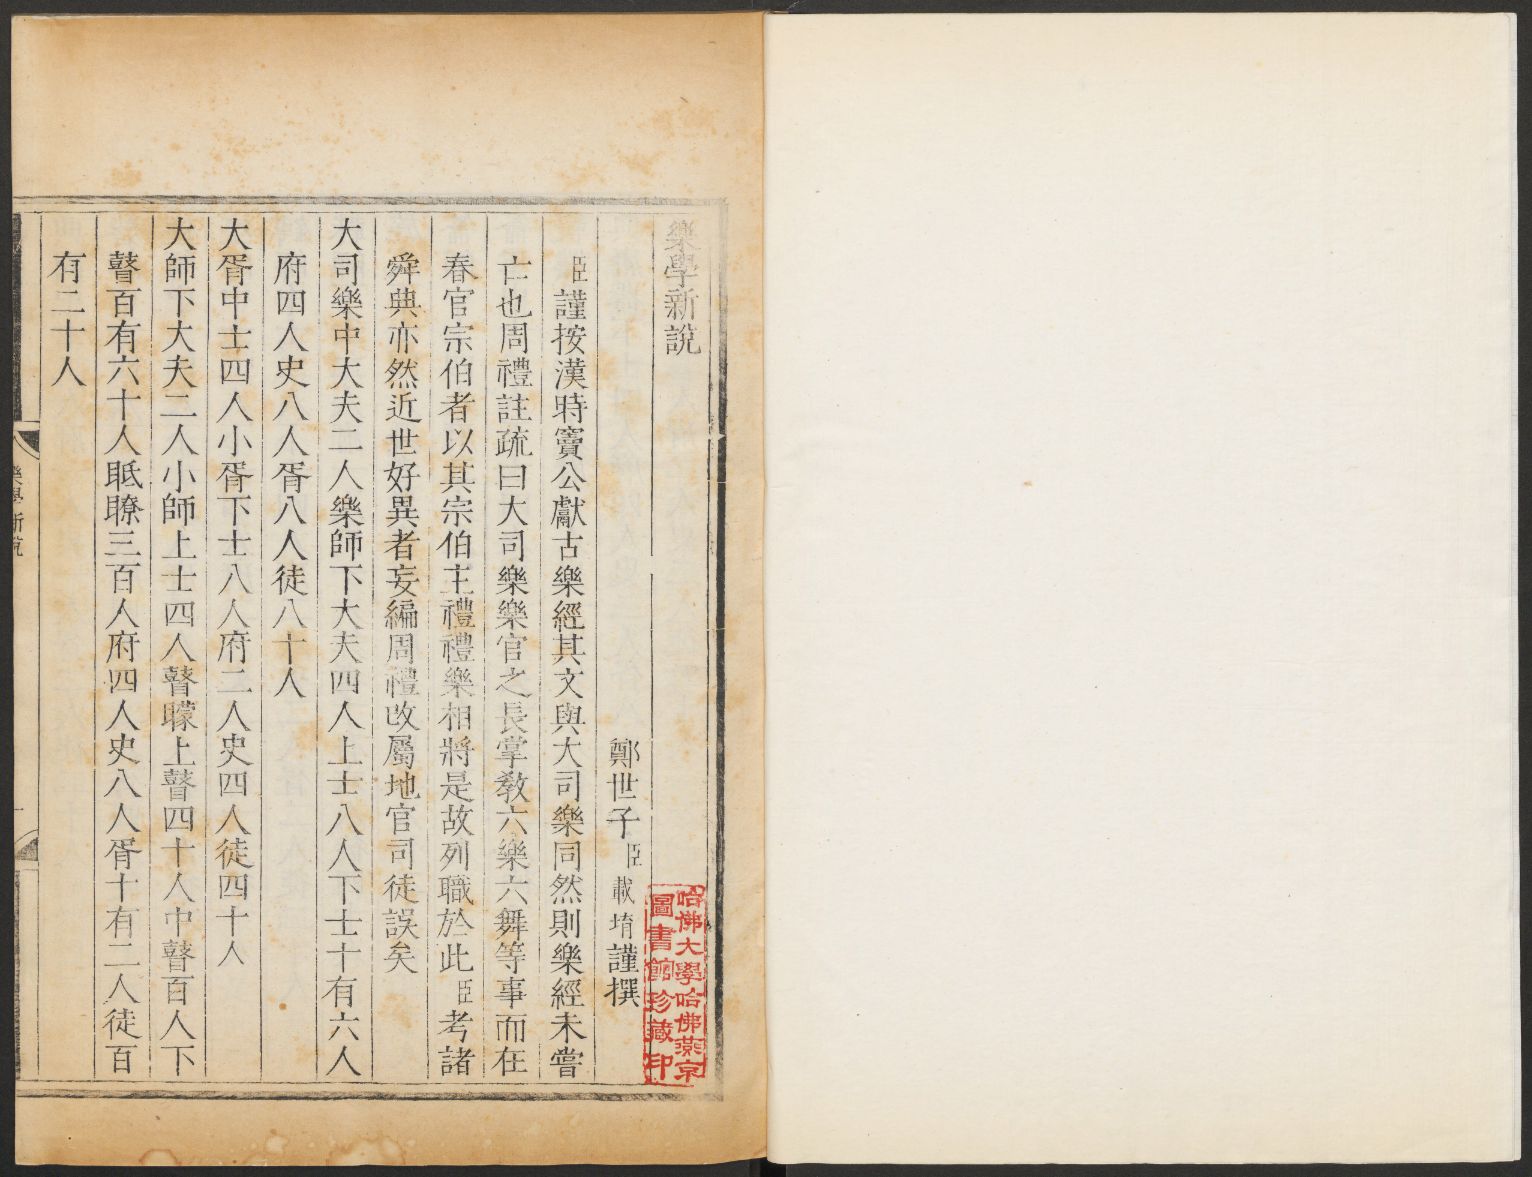 樂學新說
鄭世子臣載堉謹撰
臣謹按漢時竇公獻古樂經其文與大司樂同然則樂經未嘗
亡也周禮註疏曰大司樂樂官之長掌教六樂六舞等事而在
春官宗伯者以其宗伯主禮禮樂相將是故列職於此臣考諸
舜典亦然近世好異者妄編周禮改屬地官司徒誤矣
大司樂中大夫二人樂師下大夫四人上士八人下士十有六人
府四人史八人胥八人徒八十人
大胥中士四人小胥下士八人府二人史四人徒四十人
大師下大夫二人小師上士四人瞽矇上瞽四十人中瞽百人下
瞽百有六十人眡瞭三百人府四人史八人胥十有二人徒百
有二十人
樂學新說
一
哈佛大學哈佛燕京
圖書館珍藏印